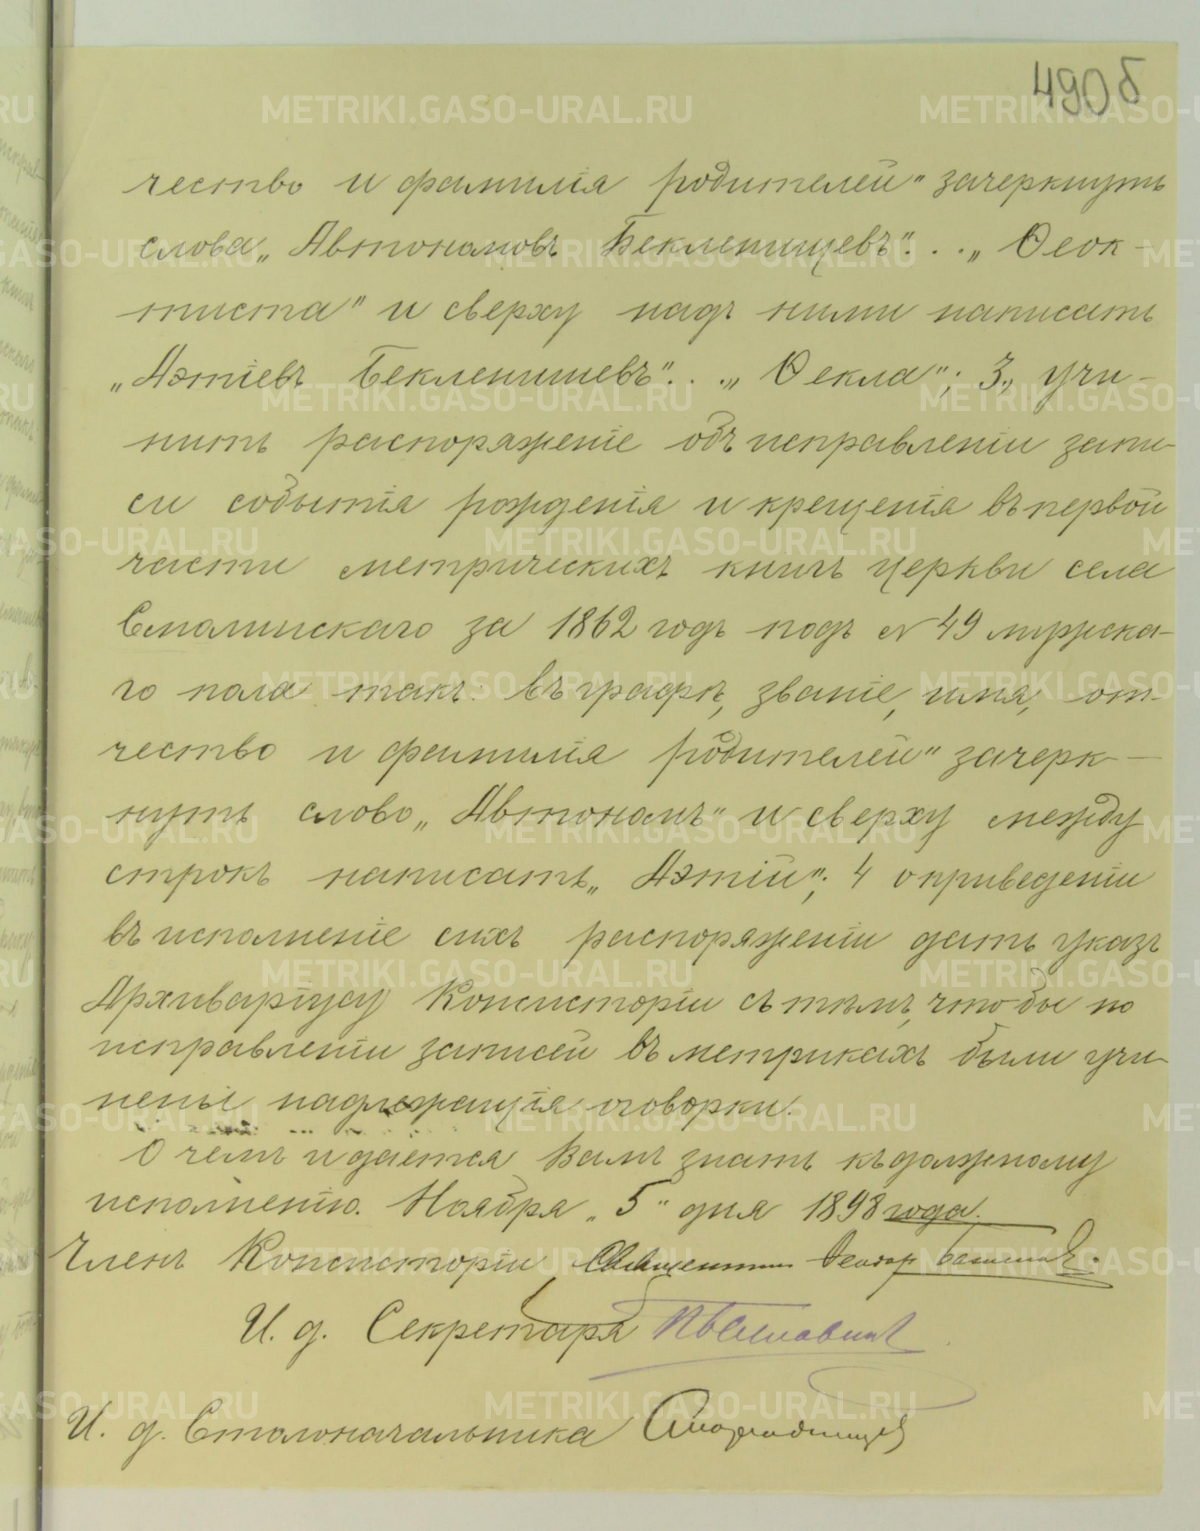 490б
чество и фамилія родителей" зачеркнуть
слова „Автономовъ Бекленищевъ"... „Ѳеок-
тиста" и сверху надъ ними написать
„Аэтіевъ Бекленищевъ"... „Ѳекла"; 3, учи-
нить распоряженіе объ исправленіи запи-
си событія рожденія и крещенія въ первой
части метрическихъ книгъ церкви села
Смолинскаго за 1862 годъ подъ № 49 мужска-
го пола такъ: въ графѣ „званіе, имя, от-
чество и фамилія родителей" зачерк-
нуть слово „Автономъ" и сверху между
строкъ написать „Аэтій"; 4 о приведеніи
въ исполненіе сихъ распоряженіи дать указъ
Архиваріусу Консисторіи съ тѣмъ, чтобы по
исправленіи записей въ метрикахъ были учи-
нены надлежащія оговорки.
О чемъ и дается Вамъ знать къ должному
исполненію. Ноября „5" дня 1898 года.
Членъ Консисторіи, Священникъ Ѳеодор
И. д. Секретаря
И. д. Столоначальника
METRIKI.GASO-URAL.RU